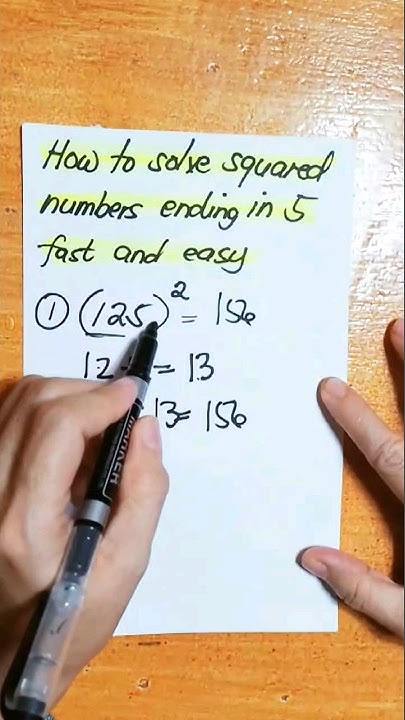 How to solve squared
numbers ending in 5
fast and easy
① (125)² = 156
12 = 13
13 = 156